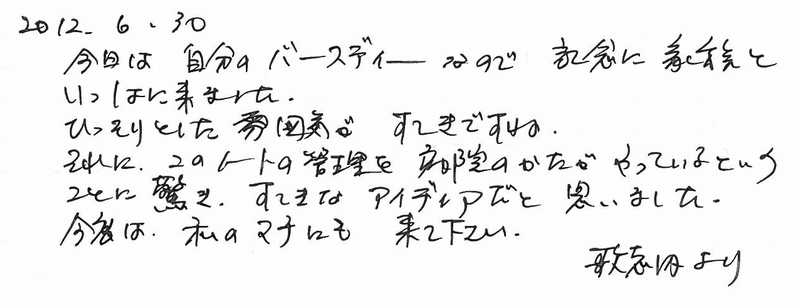 2012. 6. 30
今日は 自分の バースディー なので 記念に 家族と
いっしょに来ました.
ひっそりとした 雰囲気が すてきですね.
それに. このノートの管理を 病院のかたが やっているという
ことに 驚き. すてきな アイディアだと 思いました.
今度は. 私のマチにも 来て下さい.
歌志内より